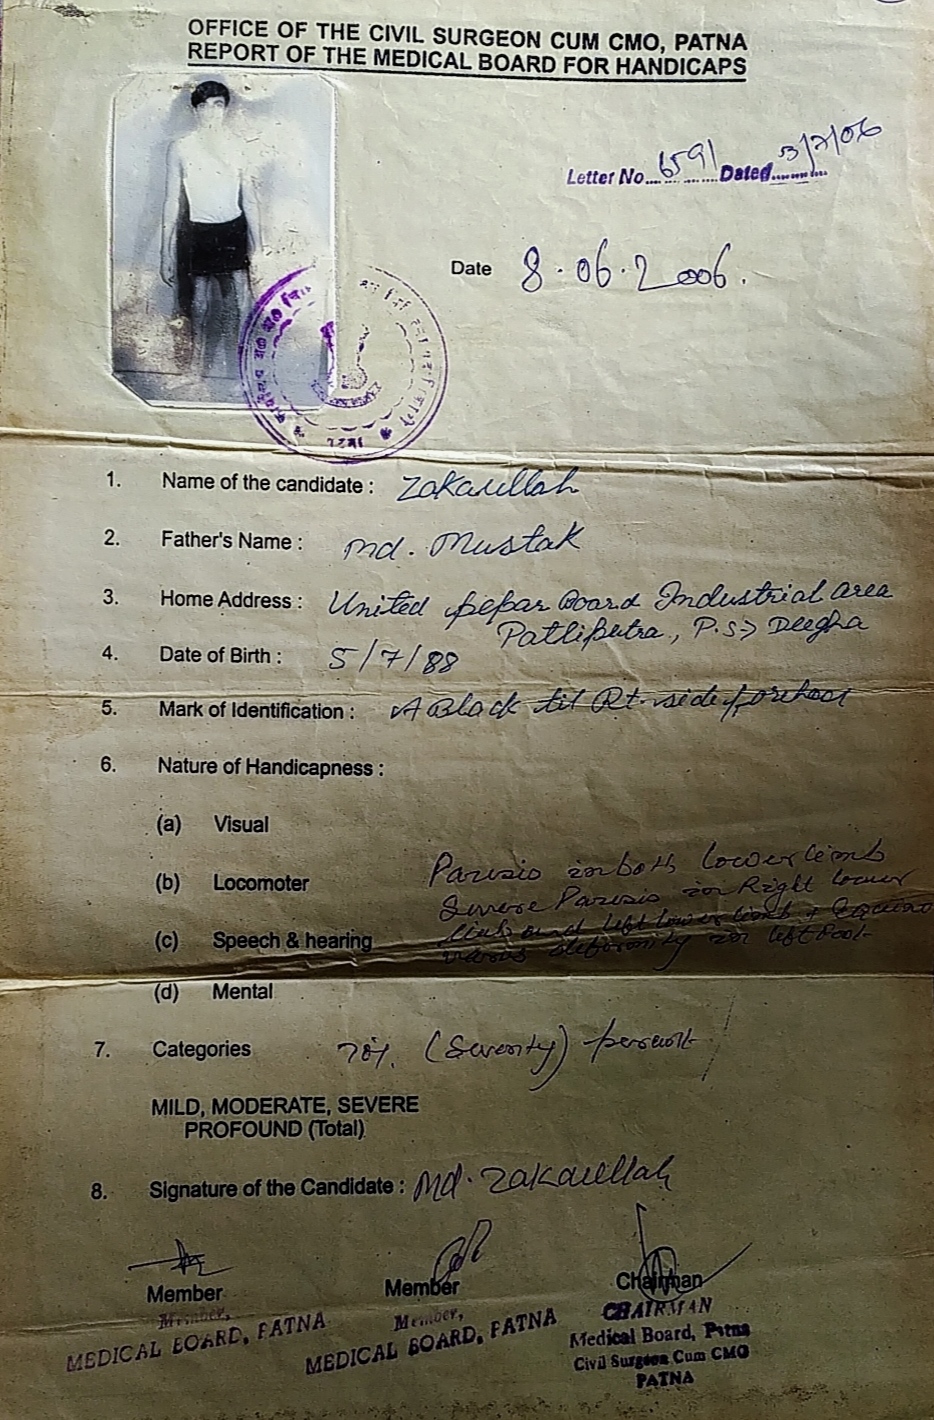 OFFICE OF THE CIVIL SURGEON CUM CMO, PATNA
REPORT OF THE MEDICAL BOARD FOR HANDICAPS
Letter No. 6591 Dated 3/7/06
Date 8.06.2006.
1. Name of the candidate : Zakaullah
2. Father's Name : Md. Mustak
3. Home Address : United pepar Board Industrial area
Patliputra, P.S> Deegha
4. Date of Birth : 5/7/88
5. Mark of Identification : A Black til Rt. side forehead
6. Nature of Handicapness :
(a) Visual
(b) Locomoter
Paresis in both lower limb
Severe Paresis in Right lower
(c) Speech & hearing
limb and left lower limb +
varus deformity in left foot
(d) Mental
7. Categories 70%. (Seventy) percent
MILD, MODERATE, SEVERE
PROFOUND (Total)
8. Signature of the Candidate : Md. Zakaullah
Member Member Chairman
Member,
MEDICAL BOARD, PATNA
Member,
MEDICAL BOARD, PATNA
CHAIRMAN
Medical Board, Patna
Civil Surgeon Cum CMO
PATNA